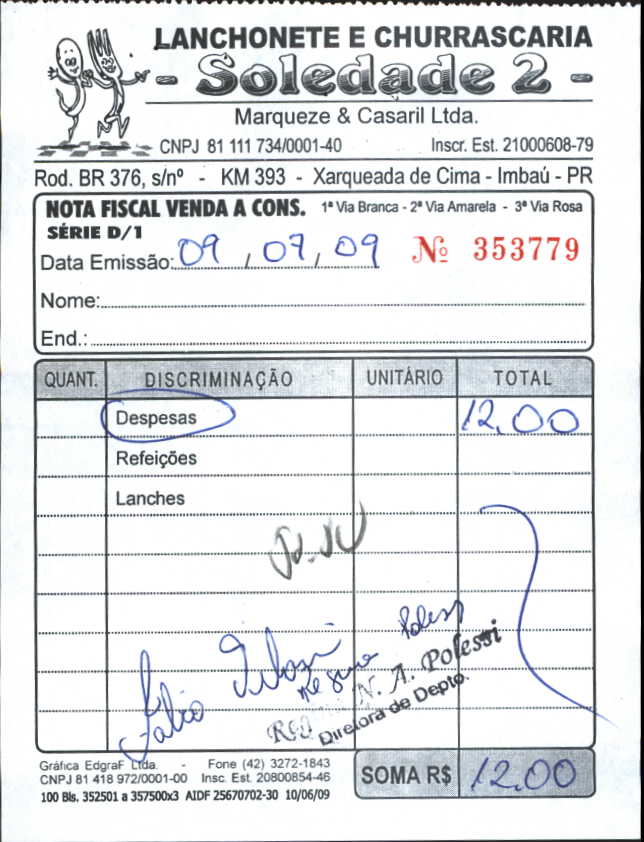 LANCHONETE E CHURRASCARIA
- Soledade 2 -
Marqueze & Casaril Ltda.
CNPJ 81 111 734/0001-40 Inscr. Est. 21000608-79
Rod. BR 376, s/nº - KM 393 - Xarqueada de Cima - Imbaú - PR
NOTA FISCAL VENDA A CONS. 1ª Via Branca - 2ª Via Amarela - 3ª Via Rosa
SÉRIE D/1
Data Emissão: 09 / 07 / 09 Nº 353779
Nome:
End.:
QUANT. DISCRIMINAÇÃO UNITÁRIO TOTAL
Despesas 12,00
Refeições
Lanches
Fabio
N. A. Polessi
Diretora de Depto.
Gráfica EdgraF Ltda. - Fone (42) 3272-1843
CNPJ 81 418 972/0001-00 Insc. Est. 20800854-46
100 Bls. 352501 a 357500x3 AIDF 25670702-30 10/06/09
SOMA R$ 12,00